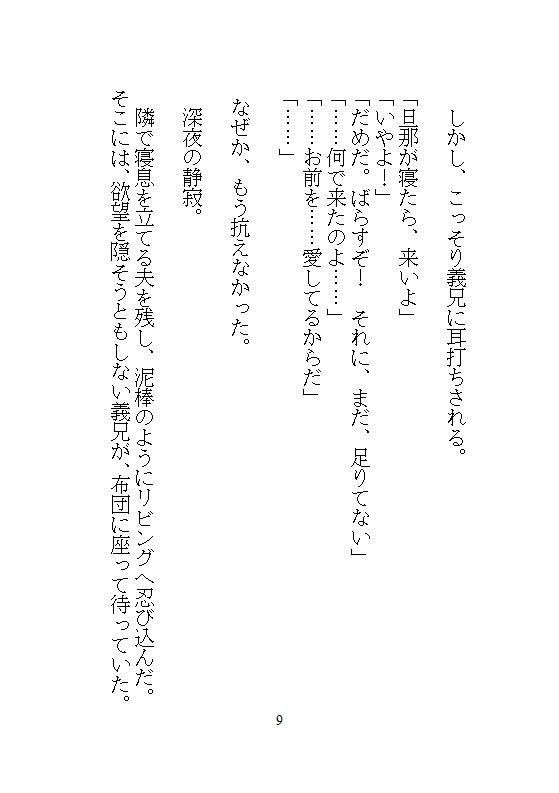 しかし、こっそり義兄に耳打ちされる。
「旦那が寝たら、来いよ」
「いやよ！」
「だめだ。ばらすぞ！　それに、まだ、足りてない」
「……何で来たのよ……」
「……お前を……愛してるからだ」
「……」
なぜか、もう抗えなかった。
深夜の静寂。
隣で寝息を立てる夫を残し、泥棒のようにリビングへ忍び込んだ。
そこには、欲望を隠そうともしない義兄が、布団に座って待っていた。
9